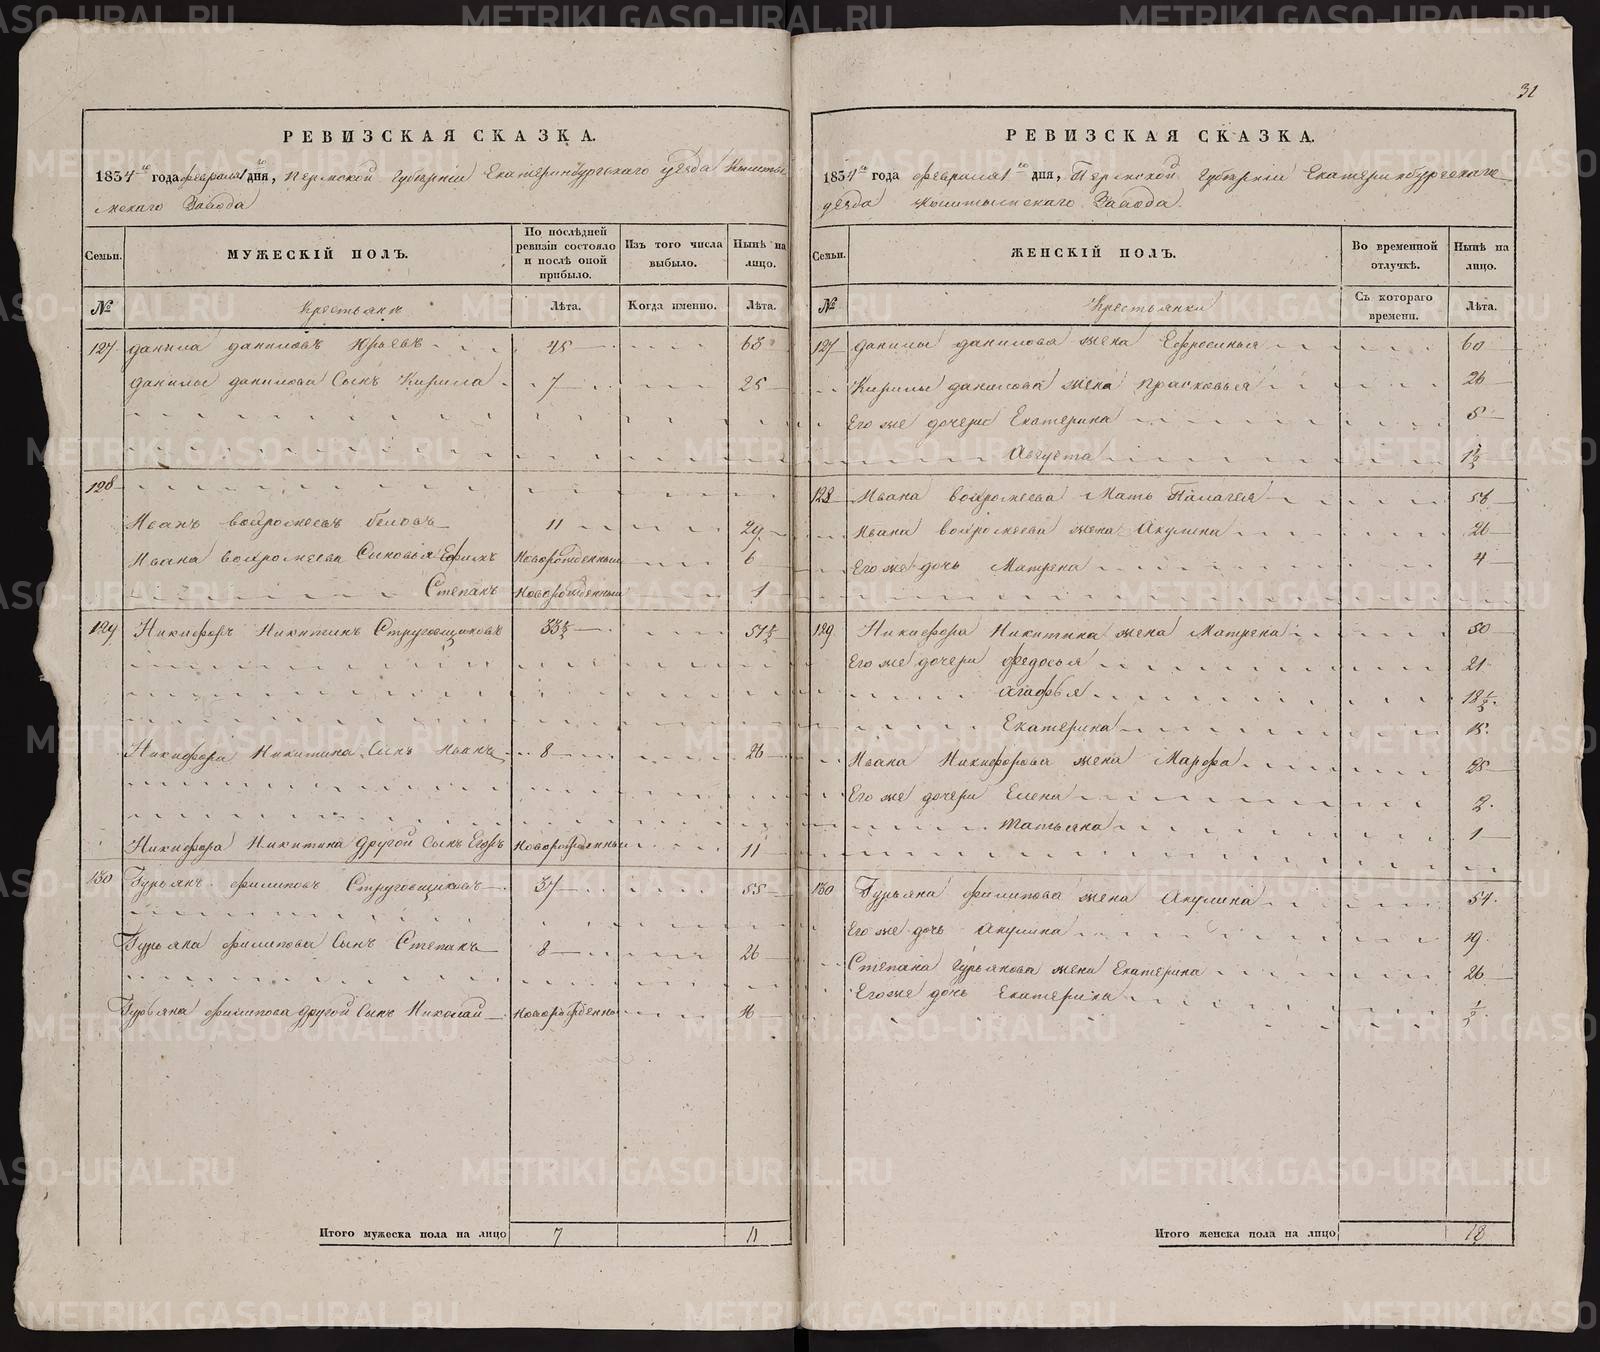 31
РЕВИЗСКАЯ СКАЗКА.
1834го года февраля 1го дня, Пермской Губернiи Екатеринбургскаго уезда Кышты
мскаго Завода
Семьи.
МУЖЕСКІЙ ПОЛЪ.
По послѣдней ревизіи состояло и послѣ оной прибыло.
Изъ того числа выбыло.
Нынѣ на лицо.
№
Крестьянъ
Лѣта.
Когда именно.
Лѣта.
127 Данила Даниловъ Юрьевъ 45 63
Данилы Данилова Сынъ Кирила 7 25
128
Иванъ Вахромеевъ Беловъ 11 29
Ивана Вахромеева Сыновья Ефимъ Новорожденный 6
Степанъ Новорожденный 1
129 Никифоръ Никитинъ Струговщиковъ 33½ 51½
Никифора Никитина Сынъ Иванъ 8 26
Никифора Никитина другой Сынъ Егоръ Новорожденный 11
130 Гурьянъ Филиповъ Струговщиковъ 37 55
Гурьяна Филипова Сынъ Степанъ 8 26
Гурьяна Филипова другой Сынъ Николай Новорожденны 16
Итого мужеска пола на лицо 7 11
РЕВИЗСКАЯ СКАЗКА.
1834го года февраля 1го дня, Пермской Губернiи Екатеринбургскаго
уезда Кыштымскаго Завода.
Семьи.
ЖЕНСКІЙ ПОЛЪ.
Во временной отлучкѣ.
Нынѣ на лицо.
№
Крестьянки
Съ котораго времени.
Лѣта.
127 Данилы Данилова жена Ефросинья 60
Кирилы Данилова жена Прасковья 26
Его же дочери Екатерина 5
Августа 1½
128 Ивана Вахромеева Мать Палагея 58
Ивана Вахромеева жена Акулина 26
Его же дочь Матрена 4
129 Никифора Никитина жена Матрена 50
Его же дочери Федосья 21
Агафья 18½
Екатерина 15
Ивана Никифорова жена Марфа 25
Его же дочери Елена 2
Татьяна 1
130 Гурьяна Филипова жена Акулина 54
Его же дочь Акулина 19
Степана Гурьянова жена Екатерина 26
Его же дочь Екатерина ½
Итого женска пола на лицо 18
METRIKI.GASO-URAL.RU